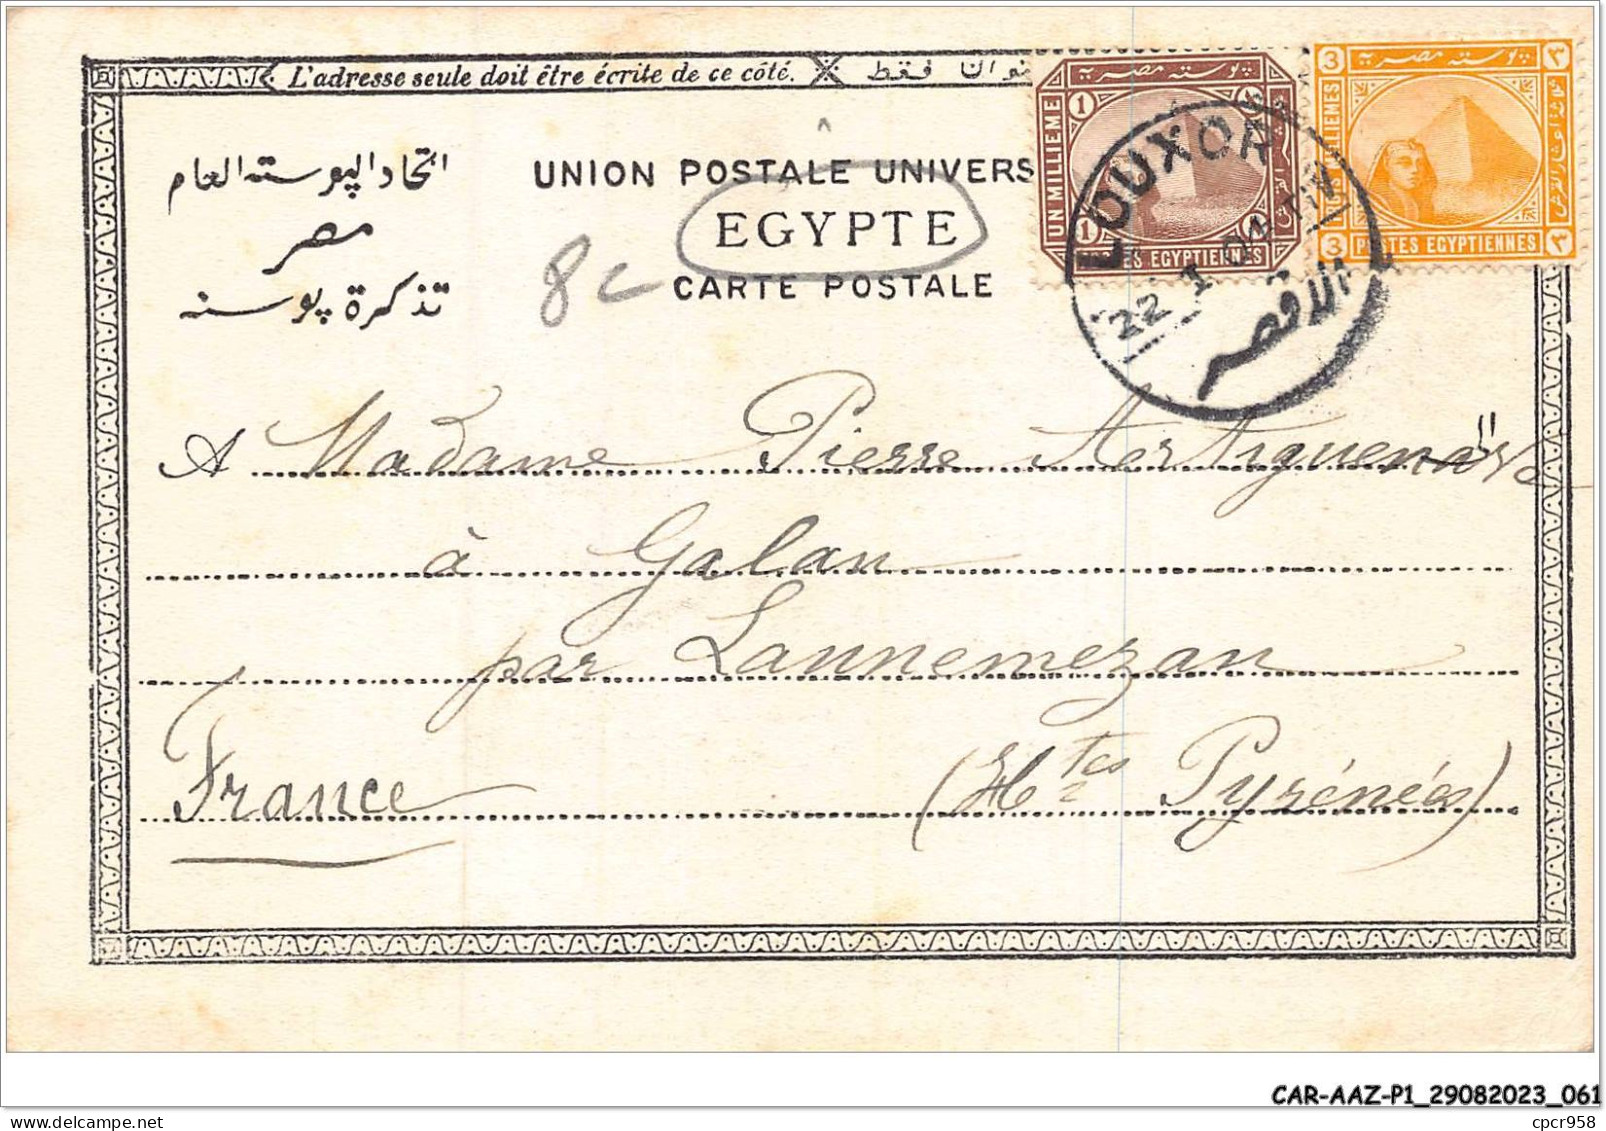 L'adresse seule doit être écrite de ce côté. فقط
اتحاد البوسته العام
مصر
تذكرة بوسته
UNION POSTALE UNIVERS
EGYPTE
CARTE POSTALE
8c
بوسته مصريه
UN MILLIEME
1 1
1 1
POSTES EGYPTIENNES
بوسته مصريه
3 ٣
3 ٣
POSTES EGYPTIENNES
LOUXOR
22 I 01
الاقصر
A Madame Pierre
à Galan
par Lannemezan
France (Htes Pyrénées)
CAR-AAZ-P1_29082023_061
cpcr958